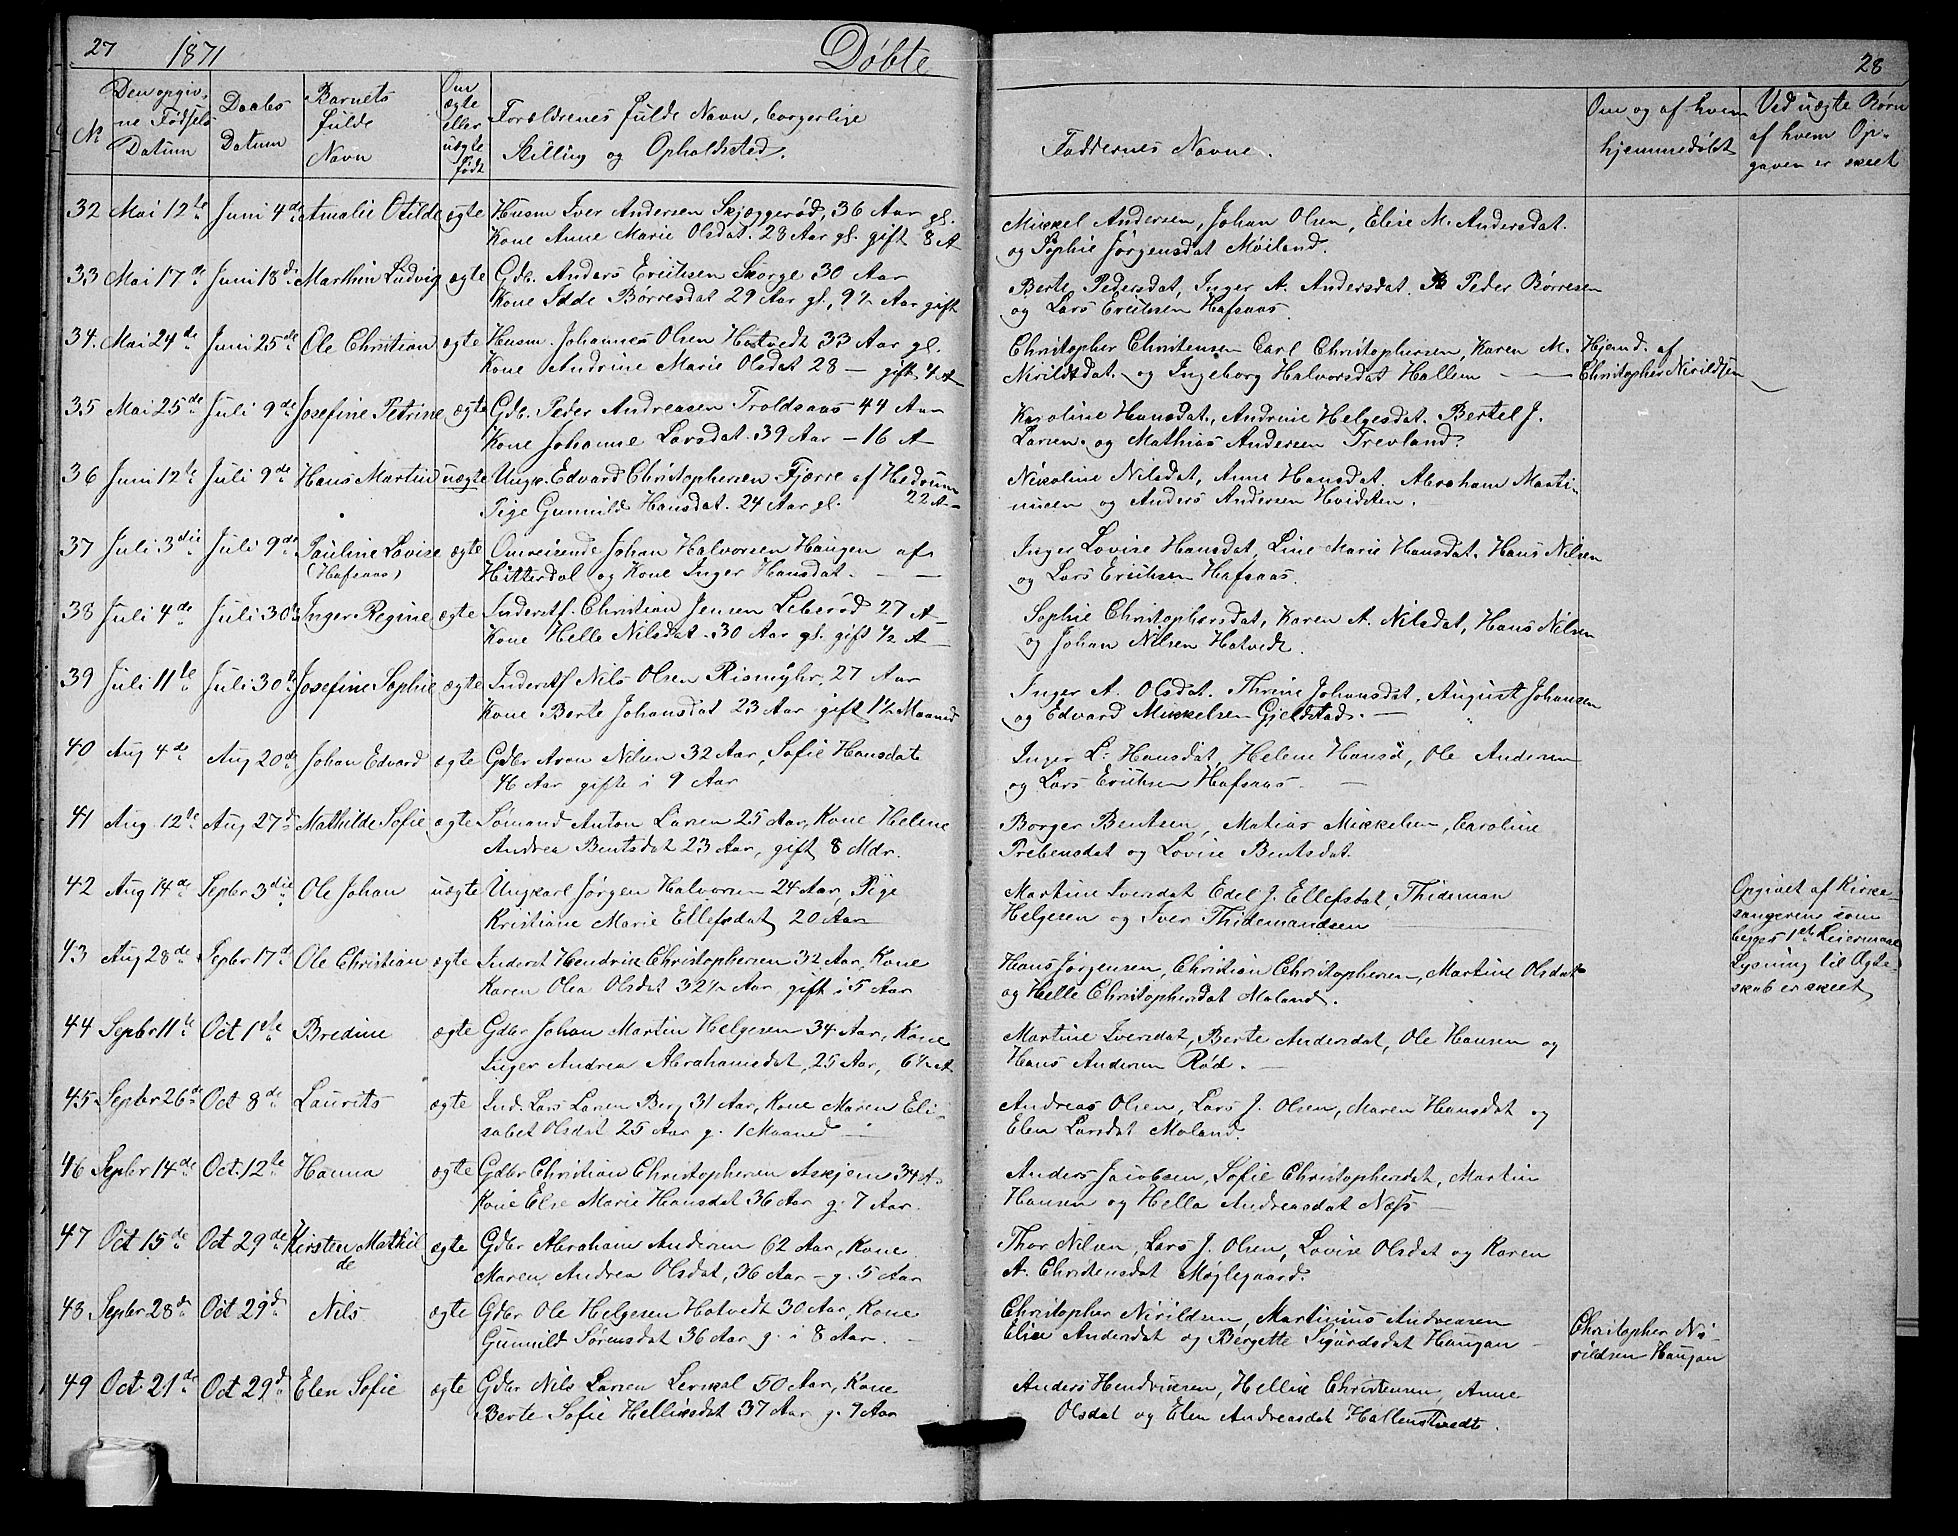 27 1871 Døbte 28
No Den opgivne Fødsels Datum Daabs Datum Barnets fulde Navn Om ægte eller uægte født Forældrenes fulde Navn, borgerlige Stilling og Opholdssted. Faddernes Navne. Om og af hvem hjemmedøbt Ved uægte Børn af hvem Opgaven er skeet
32 Mai 12te Juni 4de Amalie Otilde ægte Husm Iver Andersen Skjæggerød, 36 Aar gl. Mikkel Andersen, Johan Olsen, Elise M. Andersdat.
Kone Anne Marie Olsdat. 28 Aar gl. gift 8 A og Sophie Jørgensdat Møiland.
33 Mai 17de Juni 18de Marthin Ludvig ægte Gdb. Anders Eriksen Skorge 30 Aar Berte Pedersdat, Inger A. Andersdat. Peder Børresen
Kone Idde Børresdat 29 Aar gl, 9½ Aar gift og Lars Eriksen Hafsaas.
34. Mai 24de Juni 25de Ole Christian ægte Husm. Johannes Olsen Hotvedt 33 Aar gl. Christopher Christensen Carl Christophersen, Karen M. Hjemd. af
Kone Andrine Marie Olsdat 28 — gift ½ A og Ingeborg Halvorsdat Hallem — Christopher Nirildsen
35 Mai 25de Juli 9de Josefine Petrine ægte Gdb. Peder Andreasen Troldsaas 44 Aar Karoline Hansdat., Andrine Helgesdat. Bertel J.
Kone Johanne Larsdat. 39 Aar — 16 A Larsen. og Mathias Andersen Trevland.
36 Juni 12te Juli 9de Hans Martin uægte Ungk. Edvard Christophersen Fjærre af Hedrum 22 A Nikoline Nilsdat, Anne Hansdat. Abraham Marti-
Pige Gunnild Hansdat. 24 Aar gl. nusen og Anders Andersen Hvidsten.
37 Juli 3die Juli 9de Pauline Lovise ægte Omreisende Johan Halvorsen Haugen af Inger Lovise Hansdat, Line Marie Hansdat. Hans Nilsen
(Hafsaas) Hitterdal og Kone Inger Hansdat. — — og Lars Eriksen Hafsaas.
38 Juli 4de Juli 30te Inger Regine ægte Inderst. Christian Jensen Leberød 27 A Sophie Christophersdat, Karen A. Nilsdat, Hans Nilsen
Kone Helle Nilsdat. 30 Aar gl. gift ½ A og Johan Nilsen Hotvedt.
39 Juli 11te Juli 30te Josefine Sophie ægte Inderst Nils Olsen Rismyhr, 27 Aar Inger A. Olsdat. Thrine Johansdat, August Johansen
Kone Berte Johansdat 23 Aar gift 1½ Maaned og Edvard Mikkelsen Gjelstad. —
40 Aug 4de Aug 20de Johan Edvard ægte Gdbr Aron Nilsen 32 Aar, Sofie Hansdat Inger L. Hansdat, Helene Hansd, Ole Andersen
46 Aar gifte i 9 Aar og Lars Eriksen Hafsaas —
41 Aug. 12te Aug 27d Mathilde Sofie ægte Sømand Anton Larsen 25 Aar, Kone Helene Borger Bentsen, Matias Mikkelsen, Caroline
Andrea Bentsdat 23 Aar, gift 8 Mdr. Prebensdat og Lovise Bentsdat.
42 Aug 14de Sepbr 3die Ole Johan uægte Ungkarl Jørgen Halvorsen 24 Aar, Pige Martine Iversdat Edel J. Ellefsdat, Thideman Opgivet af Kirke-
Kristiane Marie Ellefsdat 20 Aar Helgesen og Iver Thidemandsen sangeren som
begges 1ste Leiermaal
43 Aug 28de Sepbr 17d Ole Christian ægte Inderst Hendrik Christophersen 32 Aar, Kone Hans Jørgensen, Christian Christophersen, Martine Olsdat Lysning til Ægte-
Karen Olea Olsdat 32½ Aar, gift i 5 Aar og Helle Christophersdat Moland. skab er skeet
44 Sepbr 11te Oct 1ste Bredine ægte Gdbr Johan Martin Helgesen 34 Aar, Kone Martine Iversdat, Berte Andersdat, Ole Hansen og
Inger Andrea Abrahamsdat, 25 Aar, 6½ A Hans Andersen Rød. —
45 Sepbr 26de Oct 8de Laurits ægte Ind. Lars Larsen Berg 31 Aar, Kone Maren Eli- Andreas Olsen, Lars J. Olsen, Maren Hansdat og
sabet Olsdat 25 Aar g. 1 Maaned — Elen Larsdat Moland.
46 Sepbr 14de Oct. 12te Hanna ægte Gdbr Christian Christophersen Askjem 34 A. Anders Jacobsen, Sofie Christophersdat, Martin
Kone Else Marie Hansdat 36 Aar g. 7 Aar. Hansen og Hella Andreasdat Næss —
47 Oct 15de Oct 29de Kirsten Mathil ægte Gdbr Abraham Andersen 62 Aar, Kone Thor Nilsen, Lars J. Olsen, Lovise Olsdat og Karen
de Maren Andrea Olsdat, 36 Aar - g. 5 Aar A. Christensdat Møglegaard.
48 Sepbr 28d Oct 29d Nils ægte Gdbr Ole Helgesen Hotvedt 30 Aar, Kone Christopher Nirildsen, Martinius Andreasen Christopher Ni-
Gunnild Sørensdat 36 Aar g. i 8 Aar. — Elise Andersdat og Bergette Sigurdsdat Haugan — rildsen Haugan
49 Oct. 21de Oct 29d Elen Sofie ægte Gdbr Nils Larsen Lerskal 50 Aar, Kone Anders Hendriksen, Hellik Christensen, Anne
Berte Sofie Helliksdat 37 Aar g. 9 Aar Olsdat og Elen Andreasdat Hallenstvedt.